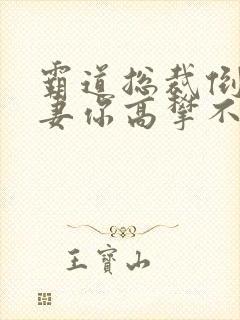 霸道总裁倒
妻你高攀不
王寶山